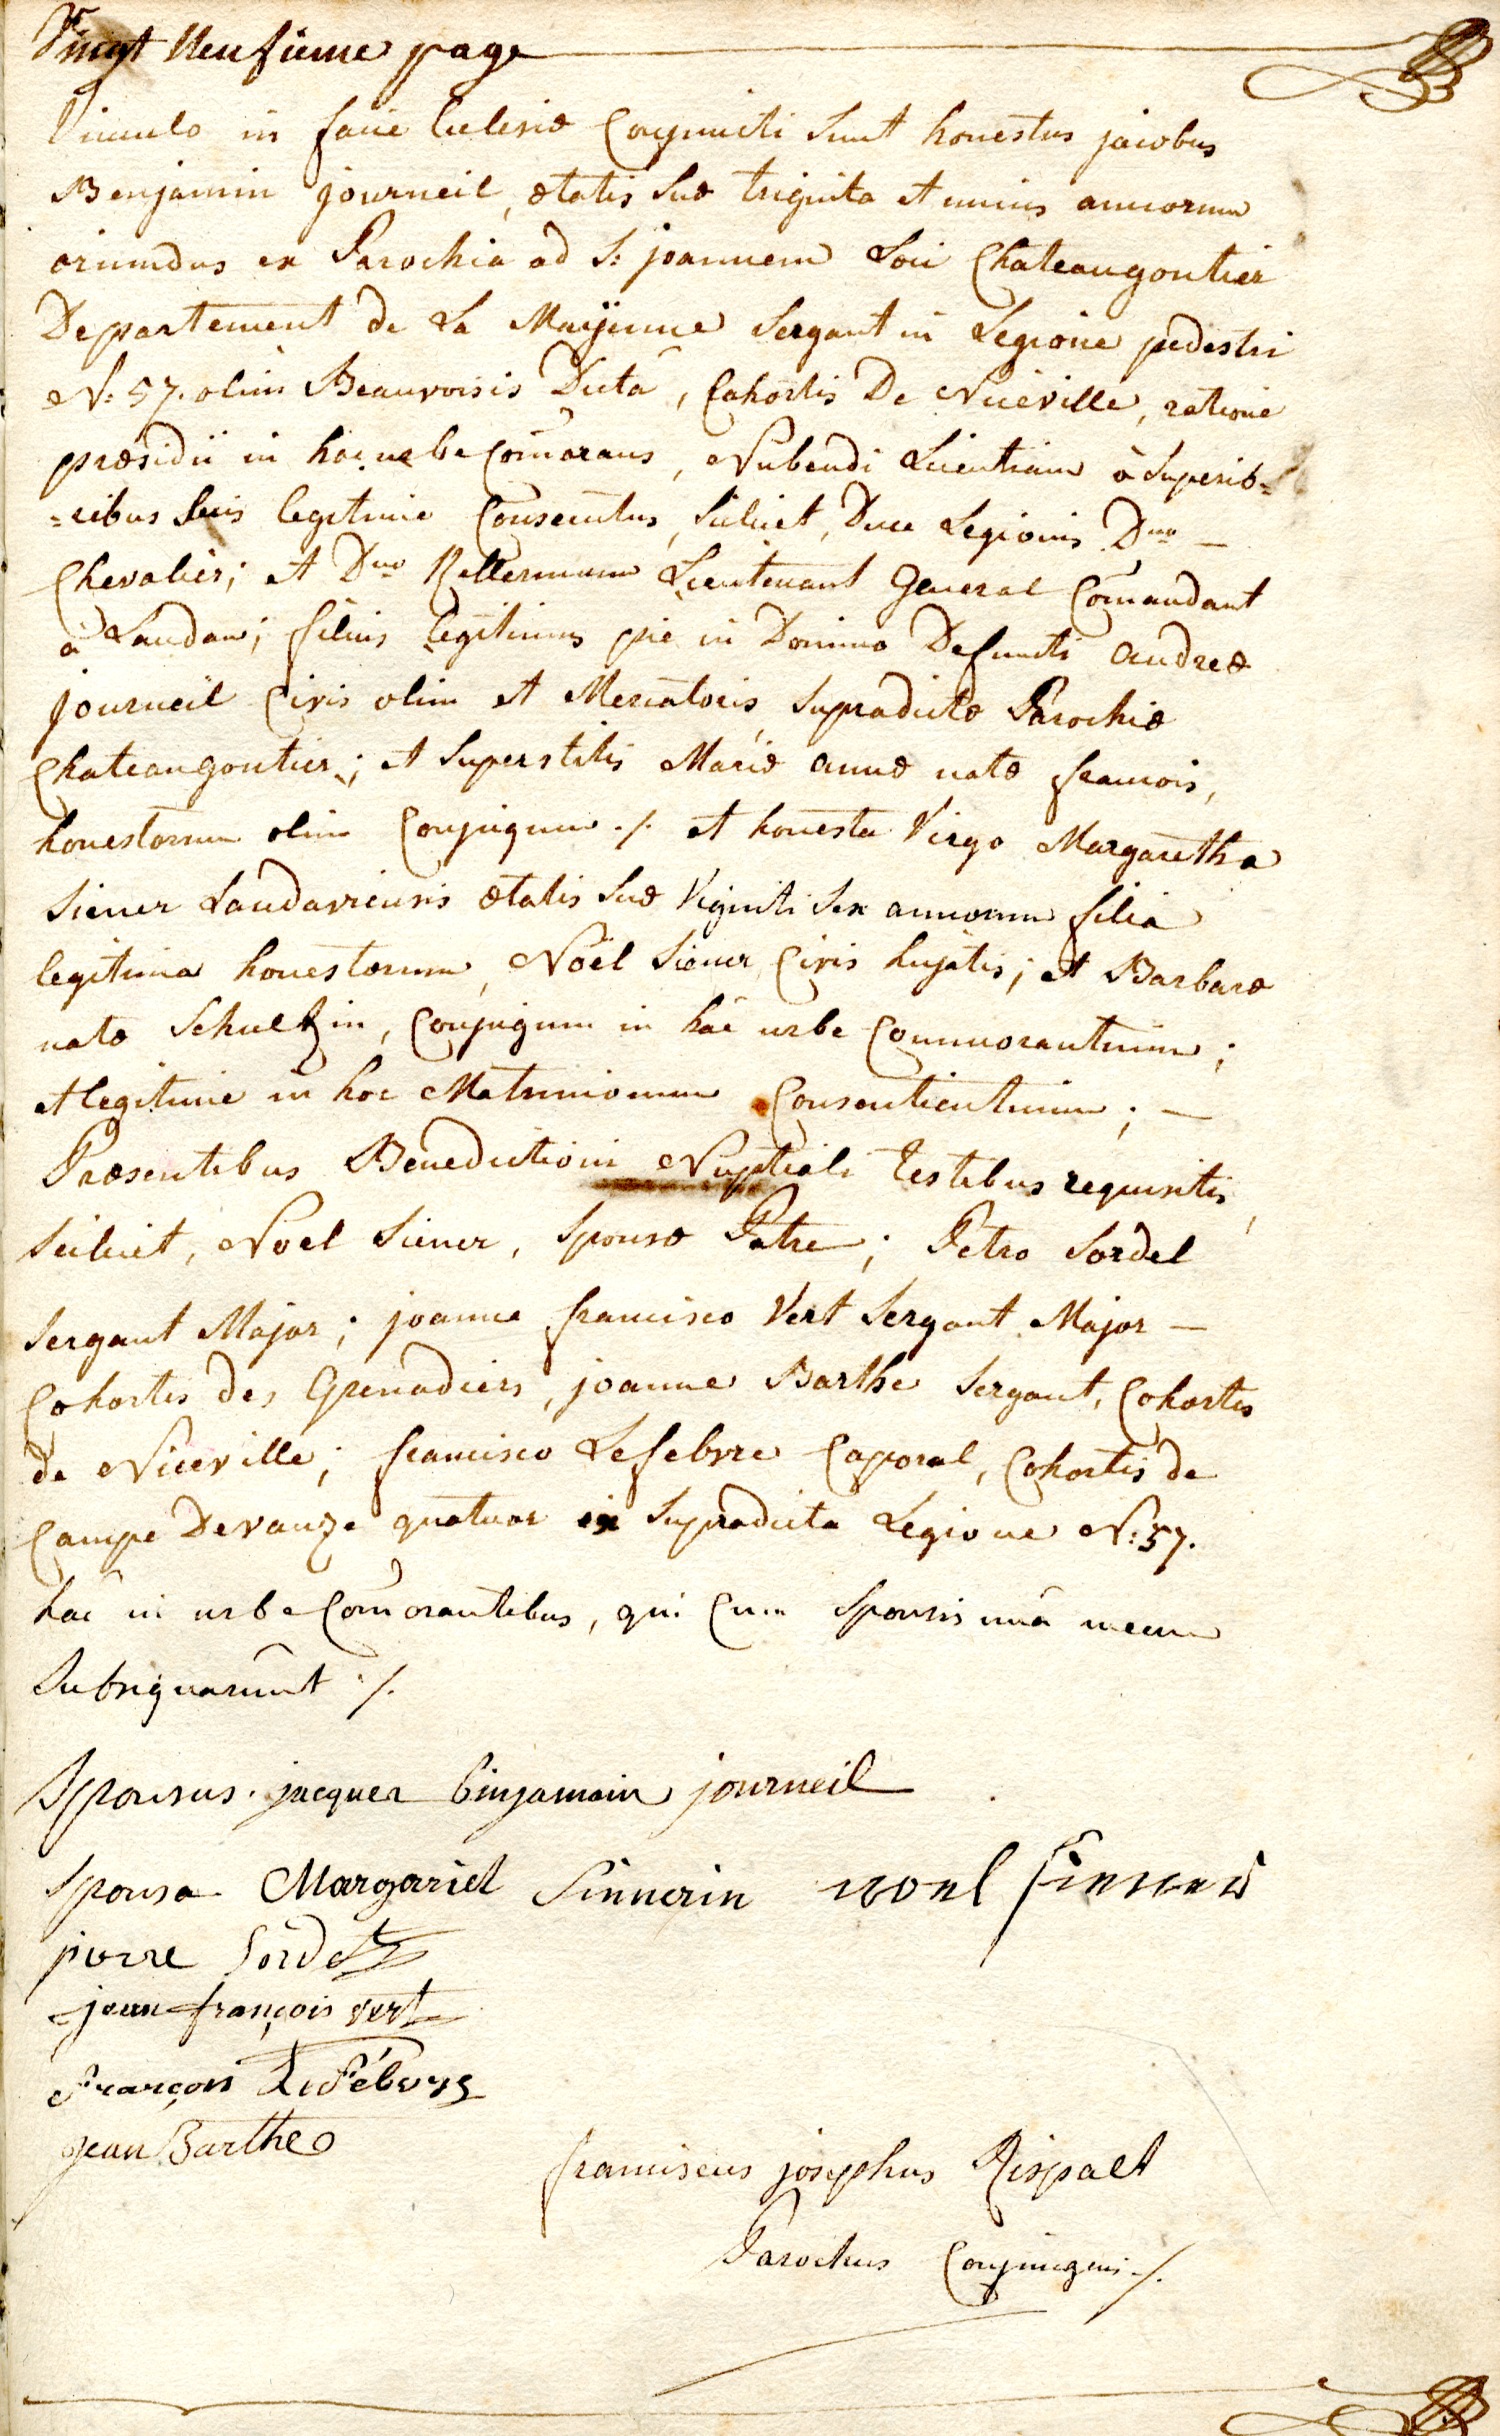 Vingt Neufieme page
Vinculo in facie Ecclesiæ Conjuncti sunt honestus jacobus
Benjamin journeil, ætatis suæ triginta et unius annorum
oriundus ex Parochia ad S: joannem Loci Chateaugontier
Departement de La Mayenne Sergant in Legione pedestri
N: 57. olim Beauvoisis Dicta, Cohortis De Niceville, ratione
præsidii in hac urbe Com̄orans, Nubendi Licentiam à Superio=
=ribus suis legitime Consecutus, scilicet, Duce Legionis Dno —
Chevalier; et Dno Kellermann Lieutenant General Com̄andant
à Landau; filius legitimus pie in Domino Defuncti andreæ
journeil Civis olim et Mercatoris supradictæ Parochiæ
Chateaugontier; et superstitis Mariæ annæ natæ francois,
honestorum olim Conjugum ./. et honesta Virgo Margaretha
Siener Landaviensis ætatis suæ Viginti sex annorum filia
legitima honestorum, Noël Siener Civis hujatis; et Barbaræ
natæ Schultzin, Conjugum in hâc urbe Commorantium;
et legitime in hoc Matrimonium Consentientium; —
Præsentibus Benedictioni Nuptiali Testibus requisitis,
scilicet, Noel Siener, Sponsæ Patre; Petro Sordel
Sergant Major; joanne francisco Vert Sergant Major —
Cohortis des Grenadiers, joanne Barthe Sergant, Cohortis
de Niceville; francisco Lefebvre Caporal, Cohortis de
Campe Devauze quatuor ex Supradicta Legione N: 57.
hac in urbe Com̄orantibus, qui Cum Sponsis unâ mecum
Subsignarunt ./.
Sponsus. jacques binjamain journeil
Sponsa Margariet Sinnerin noel siener
pierre Sordel
jean françois vert
François Lefébvre
jean Barthe
franciscus josephus Rispalt
Parochus Conjungens ./.